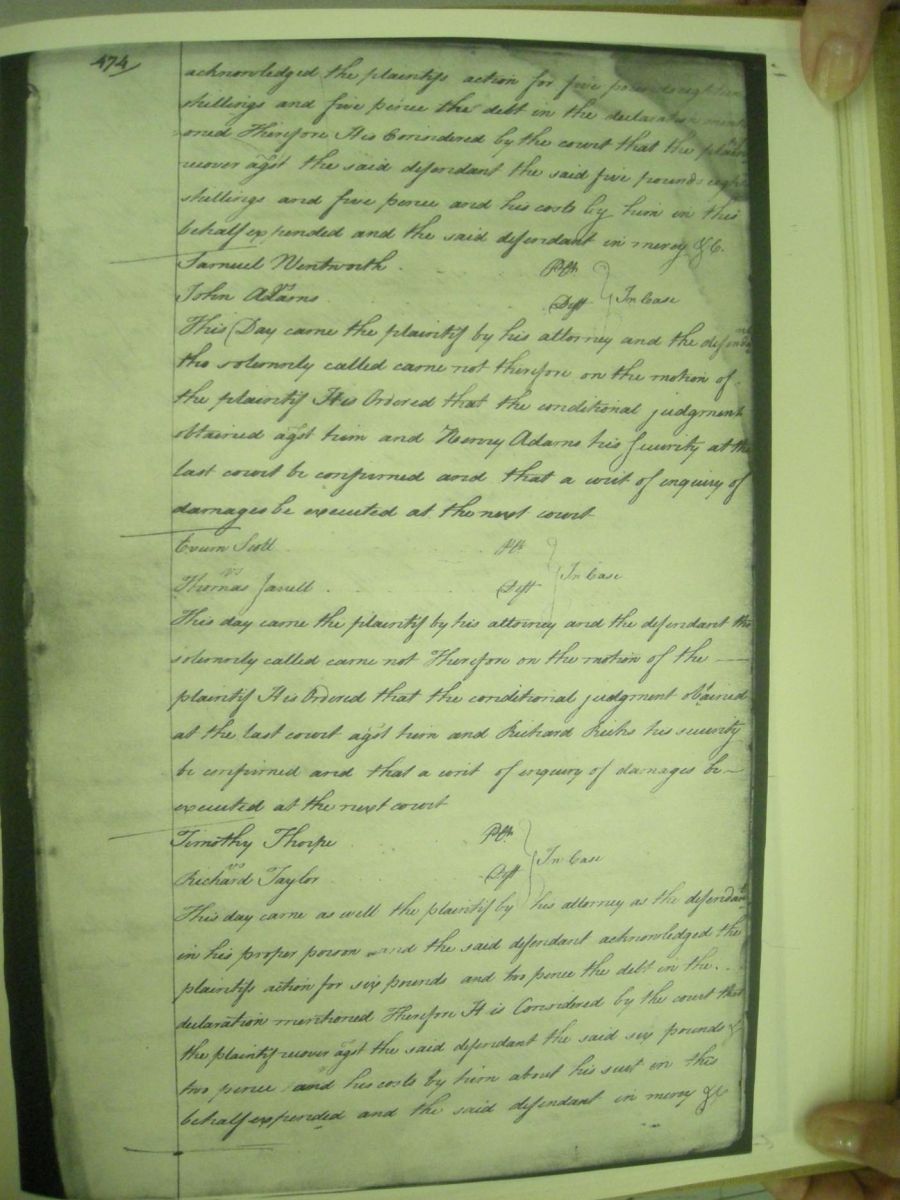 474
acknowledged the plaintifs action for five pounds eighteen
shillings and five pence the debt in the declaration menti
oned Therefore It is Considered by the court that the plaintif
recover agst the said defendant the said five pounds eighteen
shillings and five pence and his costs by him in this
behalf expended and the said defendant in mercy &C.
Samuel Wentworth Plt
vs In Case
John Adams Deft
This Day came the plaintif by his attorney and the defendant
tho solemnly called came not therefore on the motion of
the plaintif It is Ordered that the conditional judgment
obtained agst him and Henry Adams his Security at the
last court be confirmed and that a writ of inquiry of
damages be executed at the next court
Scott Plt
vs In Case
Thomas Deft
This day came the plaintif by his attorney and the defendant tho
solemnly called came not Therefore on the motion of the
plaintif It is Ordered that the conditional judgment obtained
at the last court agst him and Richard Ricks his security
be confirmed and that a writ of enquiry of damages be
executed at the next court
Timothy Thorpe Plt
vs In Case
Richard Taylor Deft
This day came as well the plaintif by his attorney as the defendant
in his proper person and the said defendant acknowledged the
plaintifs action for six pounds and two pence the debt in the
declaration mentioned Therefore It is Considered by the court that
the plaintif recover agst the said defendant the said six pounds &
two pence and his costs by him about his suit in this
behalf expended and the said defendant in mercy &C